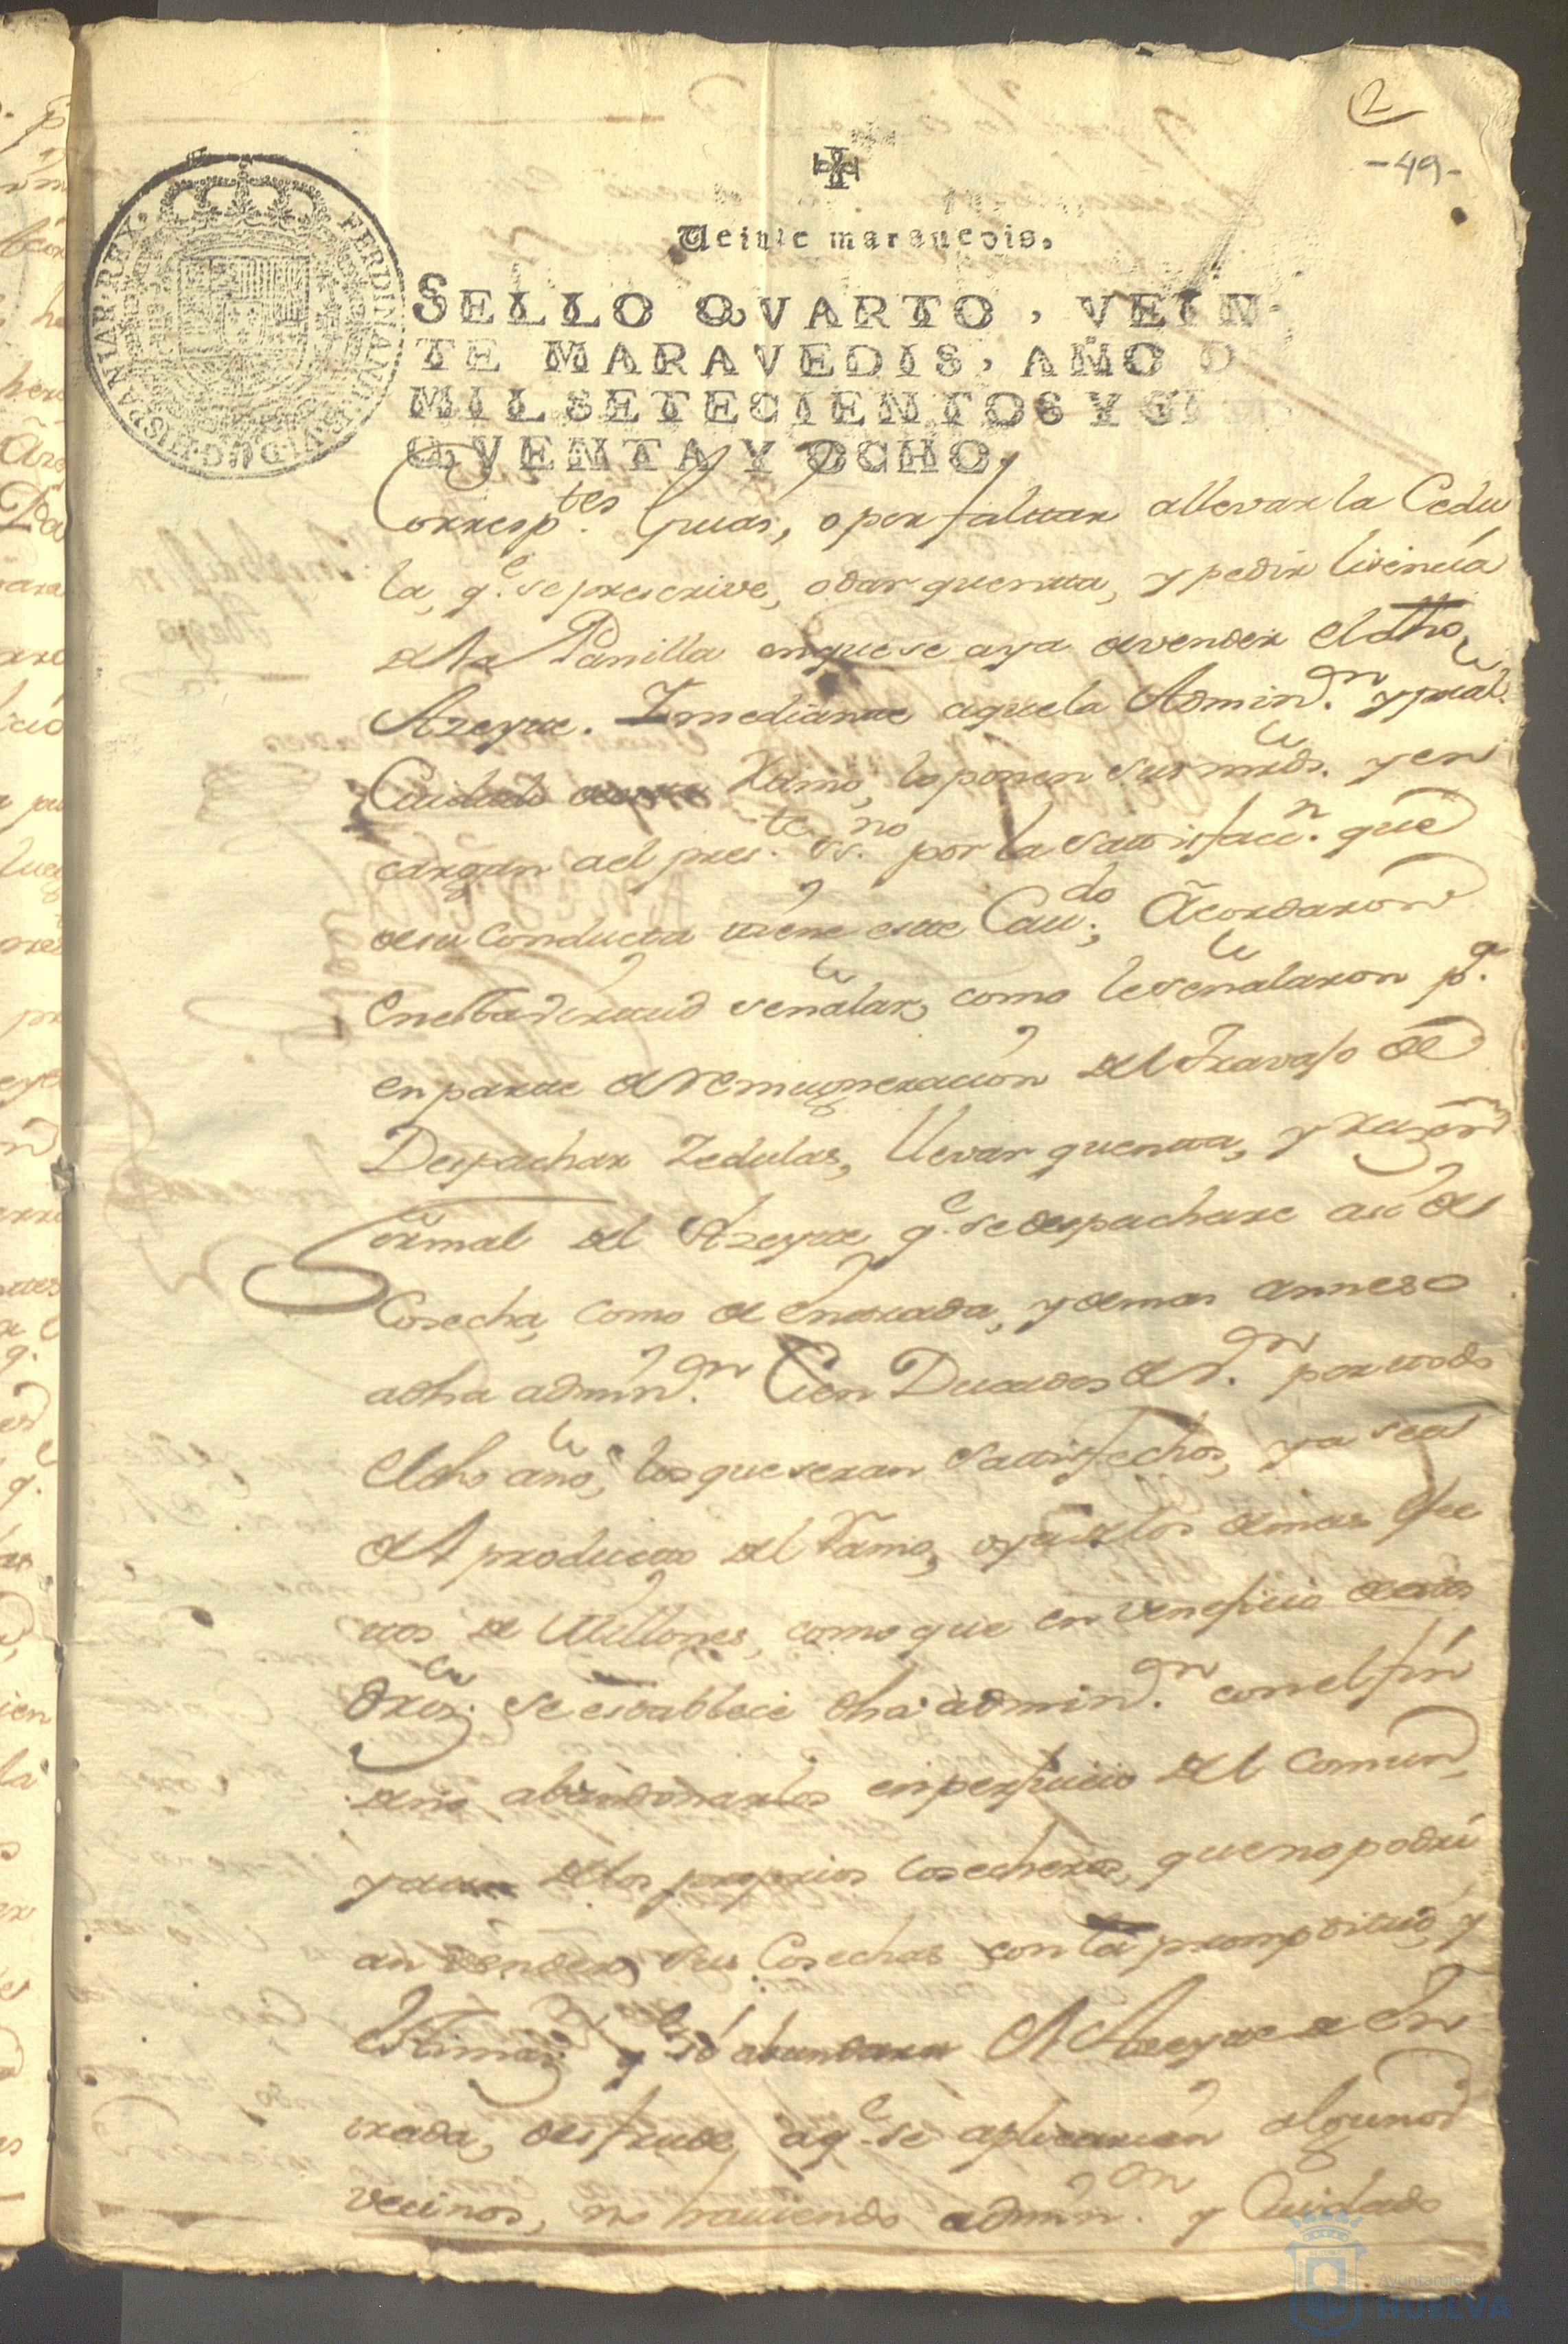 2
-49-
Veinte maravedis.
SELLO QVARTO, VEIN
TE MARAVEDIS, AÑO D
MIL SETECIENTOS Y CIN
QVENTA Y OCHO.
FERDINANDUS VI D G HISPANIAR REX
Corresp.tes Guias, o por faltar allevar la Cedu
la, q.e se prescrive, o dar quenta, y pedir lisencia
de la Panilla en que se aya de vender el dho
Azeyte. Y mediante aque la Admin.on y pral.
Cuidado Ramo, lo ponen sus mrds. y en
cargan a el pres.te ss.no por la satisfacc.n que
de su conducta tiene este Cav.do; Acordaron
en esta virtud señalar, como le señalaron p.a
en parte de remugneracion del travajo de
Despachar Zedulas, llevar quenta, y razon
formal del Azeyte q.e se despachare asi de
Cosecha, como de entrada, y demas annexo
a dha admin.on Cien Ducados de v.on por todo
el dho año, los que seran satisfechos, ya sea
del producto del Ramo, o ya de los demas efec
tos de Millones, como que en veneficio de estos
drōs. se establece dha admin.on con el fin
de no abandonarlos en perjuicio del comun,
y aun de los proprios cosecheros, que no podri
an vender sus Cosechas con la promptitud, y
estimaz.on q.e si abundara el Azeyte de En
trada, de fraude, a q.e se aplicarian algunos
vecinos, no haviendo admin.on y Cuidado
Ayuntamiento de
HUELVA